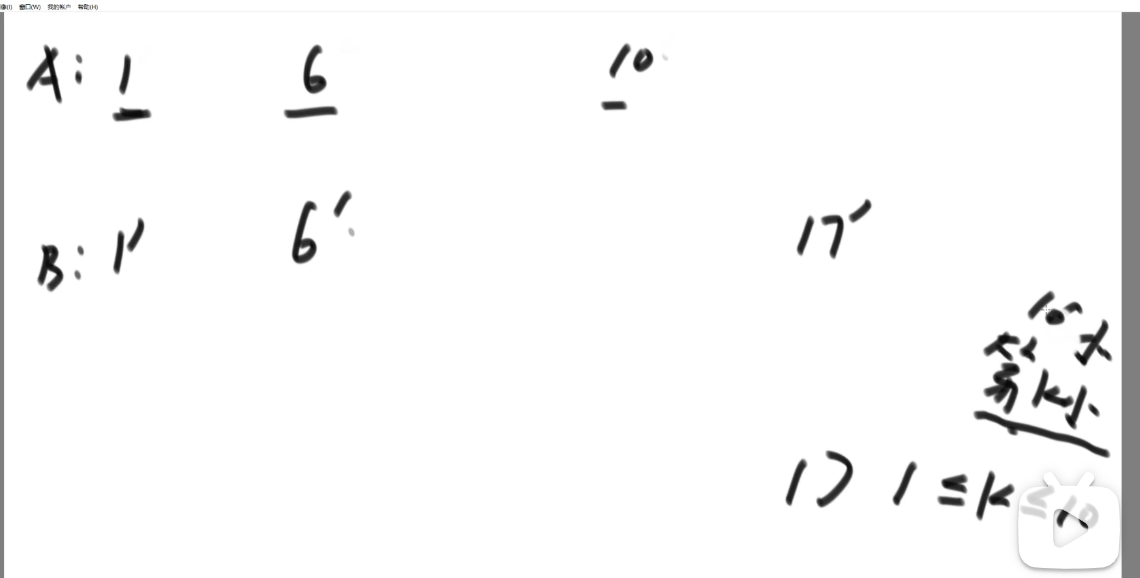 像(I) 窗口(W) 我的帐户 帮助(H)
A: 1 6 10
B: 1' 6' 17'
10个
第k小
1) 1≤k≤10